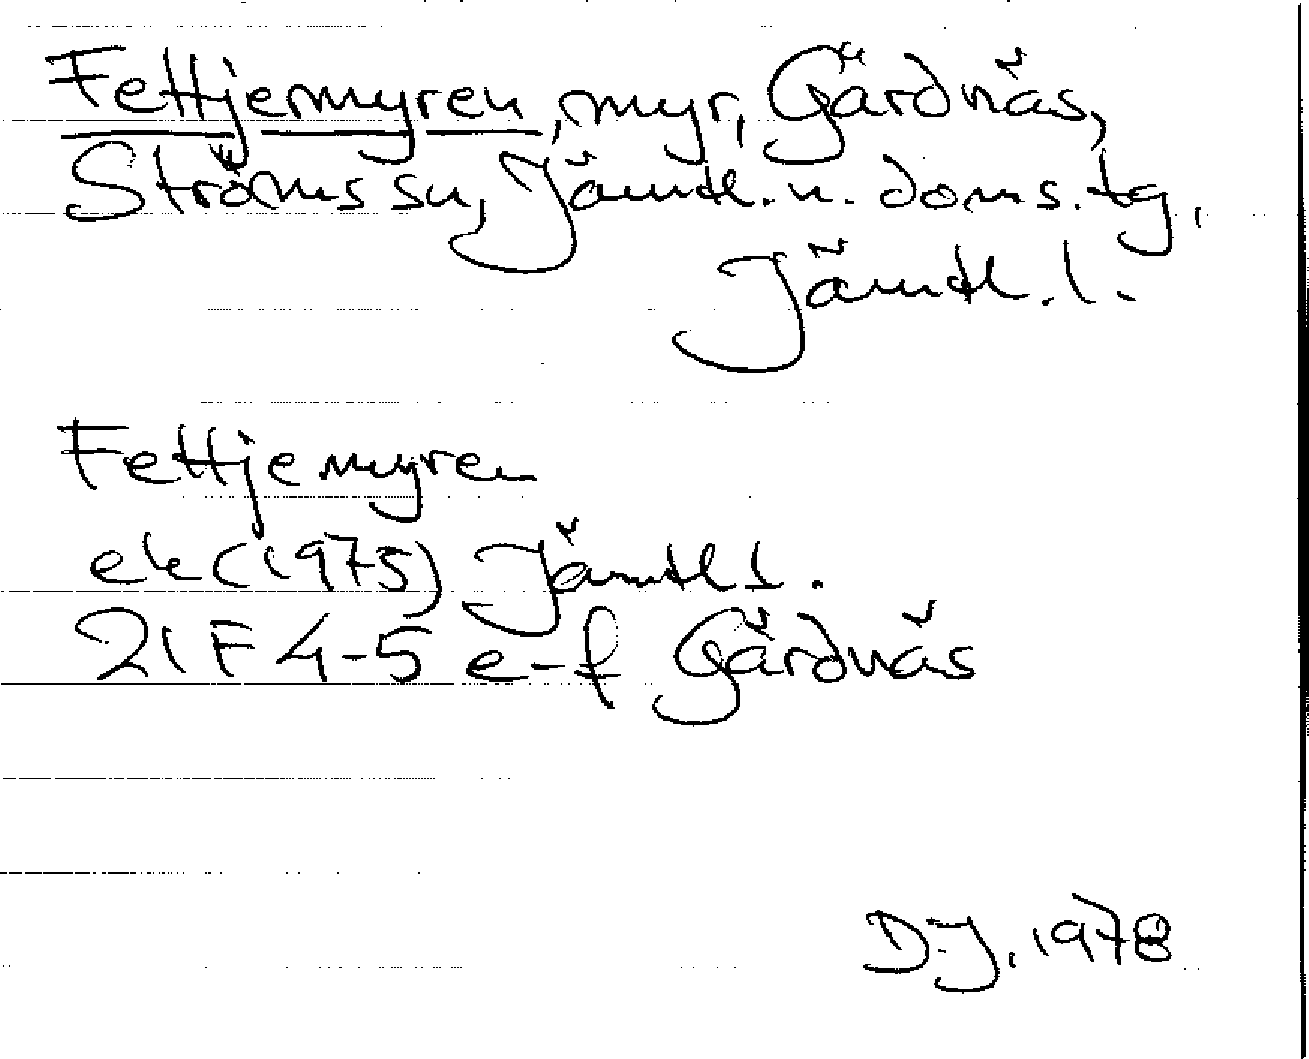 Fettjemyren, myr, Gärdnäs,
Ströms sn, Jämtl. n. doms. tg,
Jämtl. l.
Fettjemyren
ek (1975) Jämtl l.
21F 4-5 e-f Gärdnäs
D-J. 1978